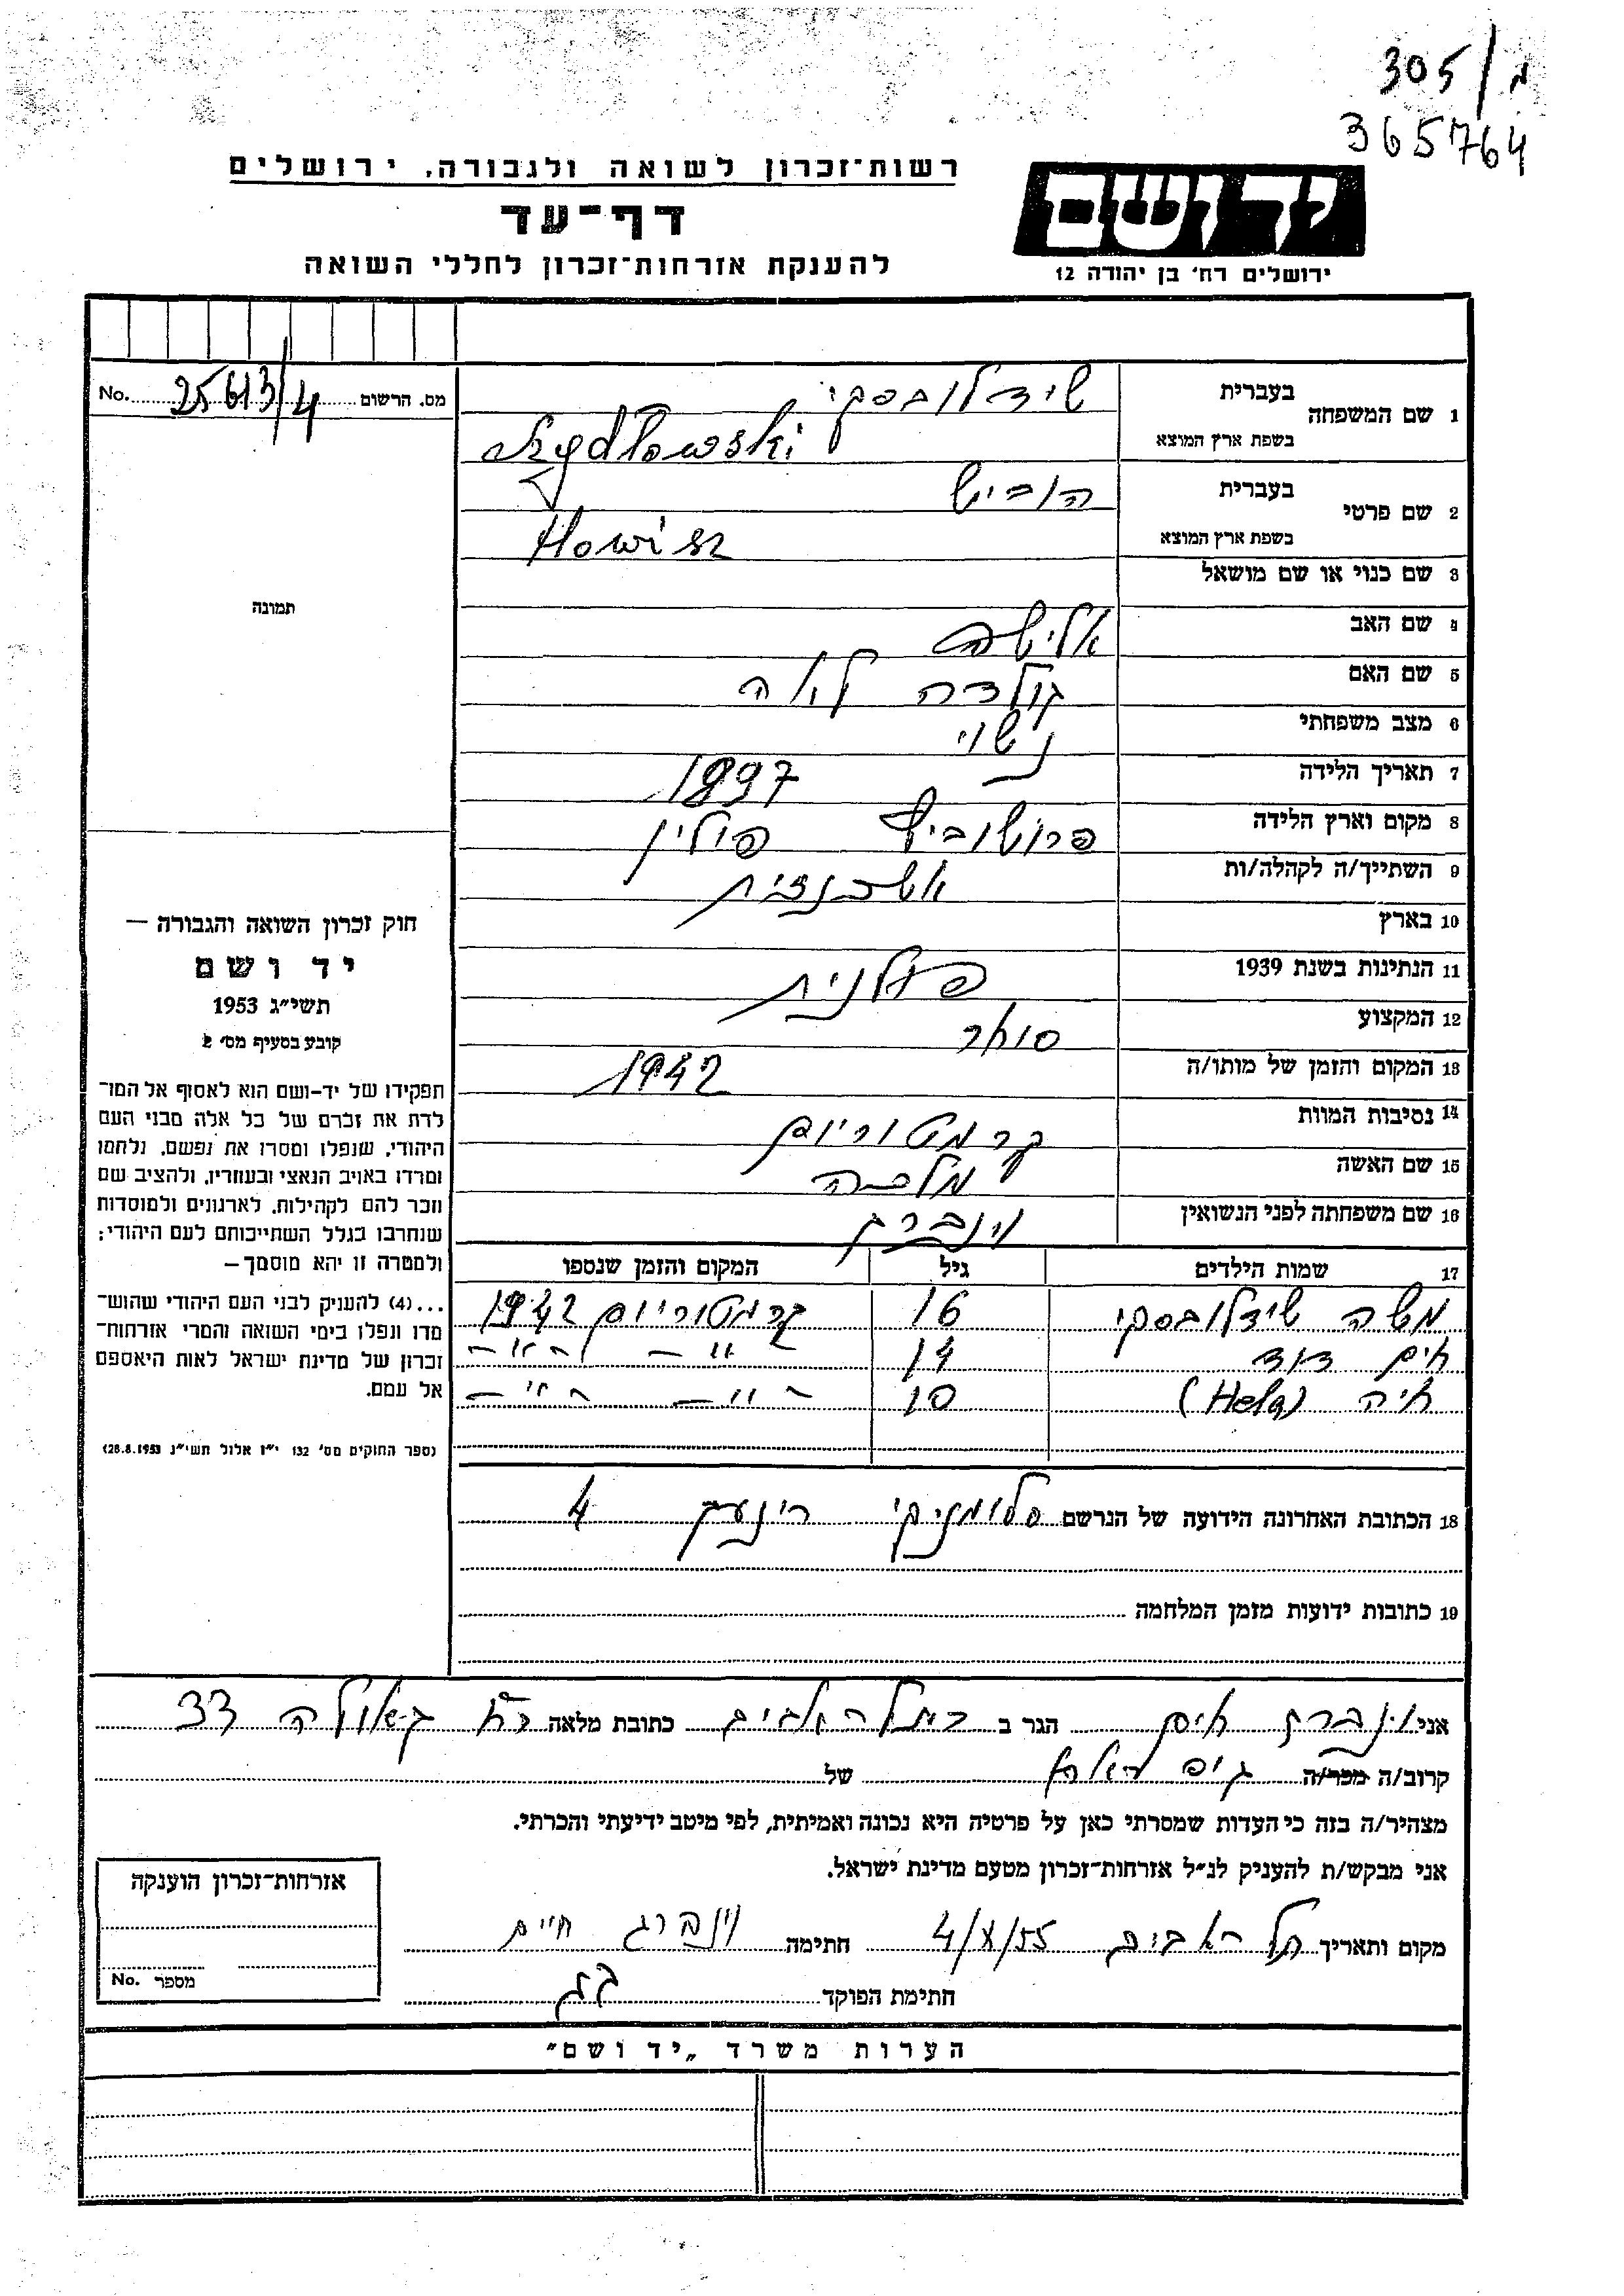 305/מ
365764
רשות־זכרון לשואה ולגבורה, ירושלים
דף־עד
להענקת אזרחות־זכרון לחללי השואה
יד ושם
ירושלים רח' בן יהודה 12
No. 25613/4 מס. הרשום
1 שם המשפחה בעברית שידלובסקי
בשפת ארץ המוצא Szydłowski
2 שם פרטי בעברית הוביש
בשפת ארץ המוצא Howisz
3 שם כנוי או שם מושאל
4 שם האב אלישה
5 שם האם גולדה
6 מצב משפחתי נשוי
7 תאריך הלידה 1897
8 מקום וארץ הלידה פרושוביץ פולין
9 השתייך/ה לקהלה/ות אשכנזית
10 בארץ
11 הנתינות בשנת 1939 פולנית
12 המקצוע סוחר
13 המקום והזמן של מותו/ה 1942
14 נסיבות המוות קרמטוריום
15 שם האשה מלכה
16 שם משפחתה לפני הנשואין וינברג
17 שמות הילדים גיל המקום והזמן שנספו
משה שידלובסקי 16 קרמטוריום 1942
חים דוד 14 — " — — " —
חיה (Hela) 10 — " — — " —
18 הכתובת האחרונה הידועה של הנרשם סלומניקי רינעק 4
19 כתובות ידועות מזמן המלחמה
תמונה
חוק זכרון השואה והגבורה —
יד ושם
תשי״ג 1953
קובע בסעיף מס' 2
תפקידו של יד-ושם הוא לאסוף אל המו־
לדת את זכרם של כל אלה מבני העם
היהודי, שנפלו ומסרו את נפשם, נלחמו
ומרדו באויב הנאצי ובעוזריו, ולהציב שם
וזכר להם לקהילות, לארגונים ולמוסדות
שנחרבו בגלל השתייכותם לעם היהודי;
ולמטרה זו יהא מוסמך —
...(4) להעניק לבני העם היהודי שהוש־
מדו ונפלו בימי השואה והמרי אזרחות־
זכרון של מדינת ישראל לאות היאספם
אל עמם.
(ספר החוקים מס' 132 י״ז אלול תשי״ג 28.8.1953)
אני וינברג חים הגר ב תל אביב כתובת מלאה רח גאולה 33
קרוב/ה מכר/ה גיס של
מצהיר/ה בזה כי העדות שמסרתי כאן על פרטיה היא נכונה ואמיתית, לפי מיטב ידיעתי והכרתי.
אני מבקש/ת להעניק לנ״ל אזרחות־זכרון מטעם מדינת ישראל.
מקום ותאריך תל אביב 4/X/55 חתימה וינברג חיים
חתימת הפוקד
אזרחות־זכרון הוענקה
מספר No.
הערות משרד „יד ושם״